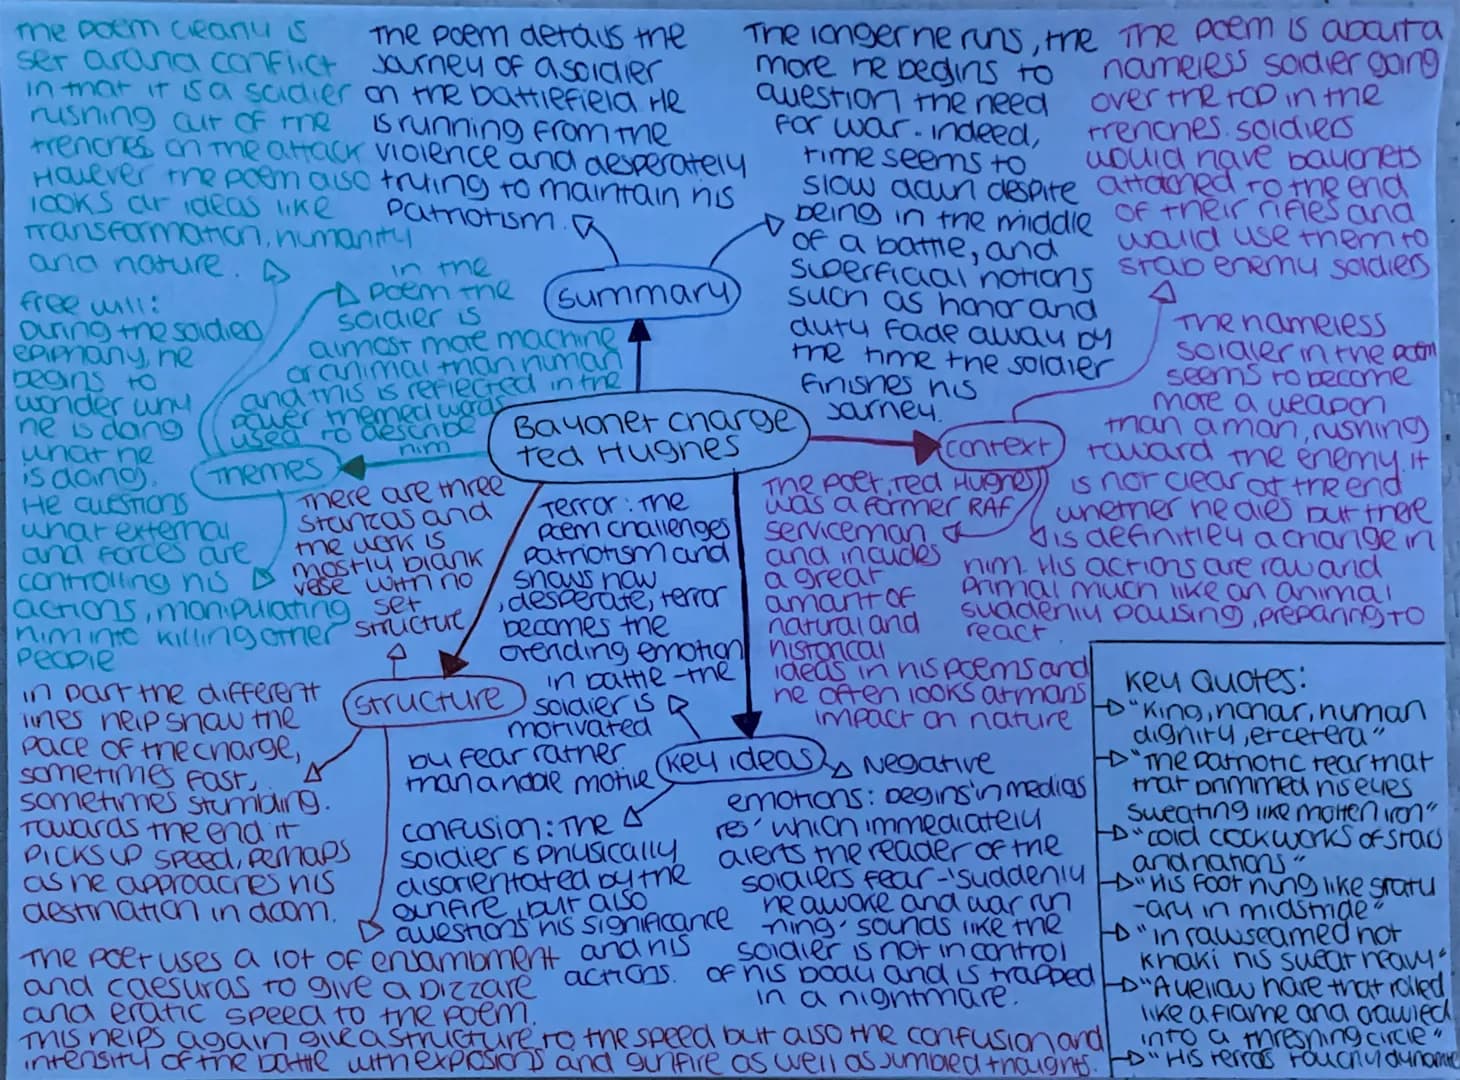 The poem clearly is
set around conflict
in that it is a soldier
rushing out of the
trenches on the attack
However the poem also
looks at ideas like
transformation, humanity
and nature.
The poem details the
journey of a soldier
on the battlefield He
is running from the
violence and desperately
trying to maintain his
patriotism.
The longer he runs, the
more he begins to
question the need
for war. indeed,
time seems to
slow down despite
being in the middle
of a battle, and
superficial notions
such as honor and
duty fade away by
the time the soldier
finishes his
journey.
The poem is about a
nameless soldier going
over the top in the
trenches. soldiers
would have bayonets
attached to the end
of their rifles and
would use them to
stab enemy soldiers
summary
free will:
During the soldied
epihany, he
begins to
wonder why
he is doing
what he
is doing.
He questions
what external
and forces are
controlling his
actions, manipulating
him into killing other
people
in the
poem the
soldier is
almost more machine
or animal than human
and this is reflected in the
power themed words
used to describe
him
Themes
Bayonet charge
Ted Hughes
context
The nameless
soldier in the poem
seems to become
more a weapon
than a man, rushing
toward the enemy. it
is not clear at the end
whether he dies but there
is definitley a change in
him. His actions are raw and
primal much like an animal
suddenly pausing, preparing to
react.
The poet, Ted Hughes
was a former RAF
serviceman
and incudes
a great
amount of
natural and
historical
ideas in his poems and
he often looks at mans
impact on nature
There are three
stanzas and
the work is
mostly blank
vese with no
set
structure
Structure
in part the different
lines help show the
pace of the charge,
sometimes fast,
sometimes stumbling.
Towards the end it
picks up speed, perhaps
as he approaches his
destination in doom.
The poet uses a lot of enjambment
and caesuras to give a bizzare
and eratic speed to the poem.
This helps again give a structure to the speed but also the confusion and
intensity of the battle with explosions and gunfire as well as jumbled thoughts.
Terror: The
poem challenges
patriotism and
shows how
, desperate, terror
becomes the
overiding emotion
in battle - the
soldier is
motivated
by fear rather
than a noble motive
Key ideas
confusion: The
soldier is physically
disorientated by the
gunfire, but also
questions his significance
and his
actions.
Negative
emotions: begins 'in medias
res' which immediately
alerts the reader of the
soldiers fear - 'suddenly
he awoke and was run
ning' sounds like the
soldier is not in control
of his body and is trapped
in a nightmare.
Key Quotes:
"King, honour, human
dignity, etcetera"
"The patriotic tear that
that brimmed his eyes
sweating like molten iron"
"cold clockworks of stars
and nations"
"His foot hung like statu
-ary in midstride"
"in raw seamed hot
khaki his sweat heavy"
"A yellow hare that rolled
like a flame and crawled
into a threshing circle"
"His terrors touchy dynamite